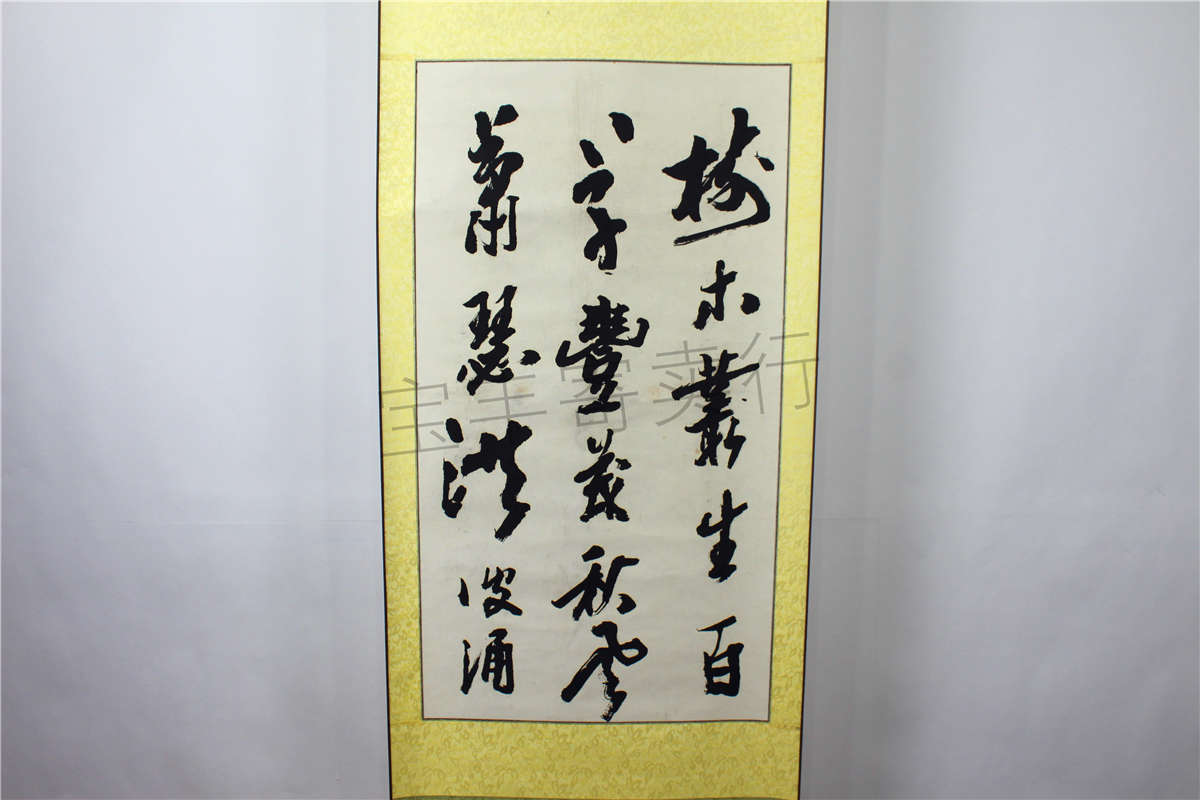 樹木叢生百
草豐茂秋風
蕭瑟洪波涌
宝丰寄卖行